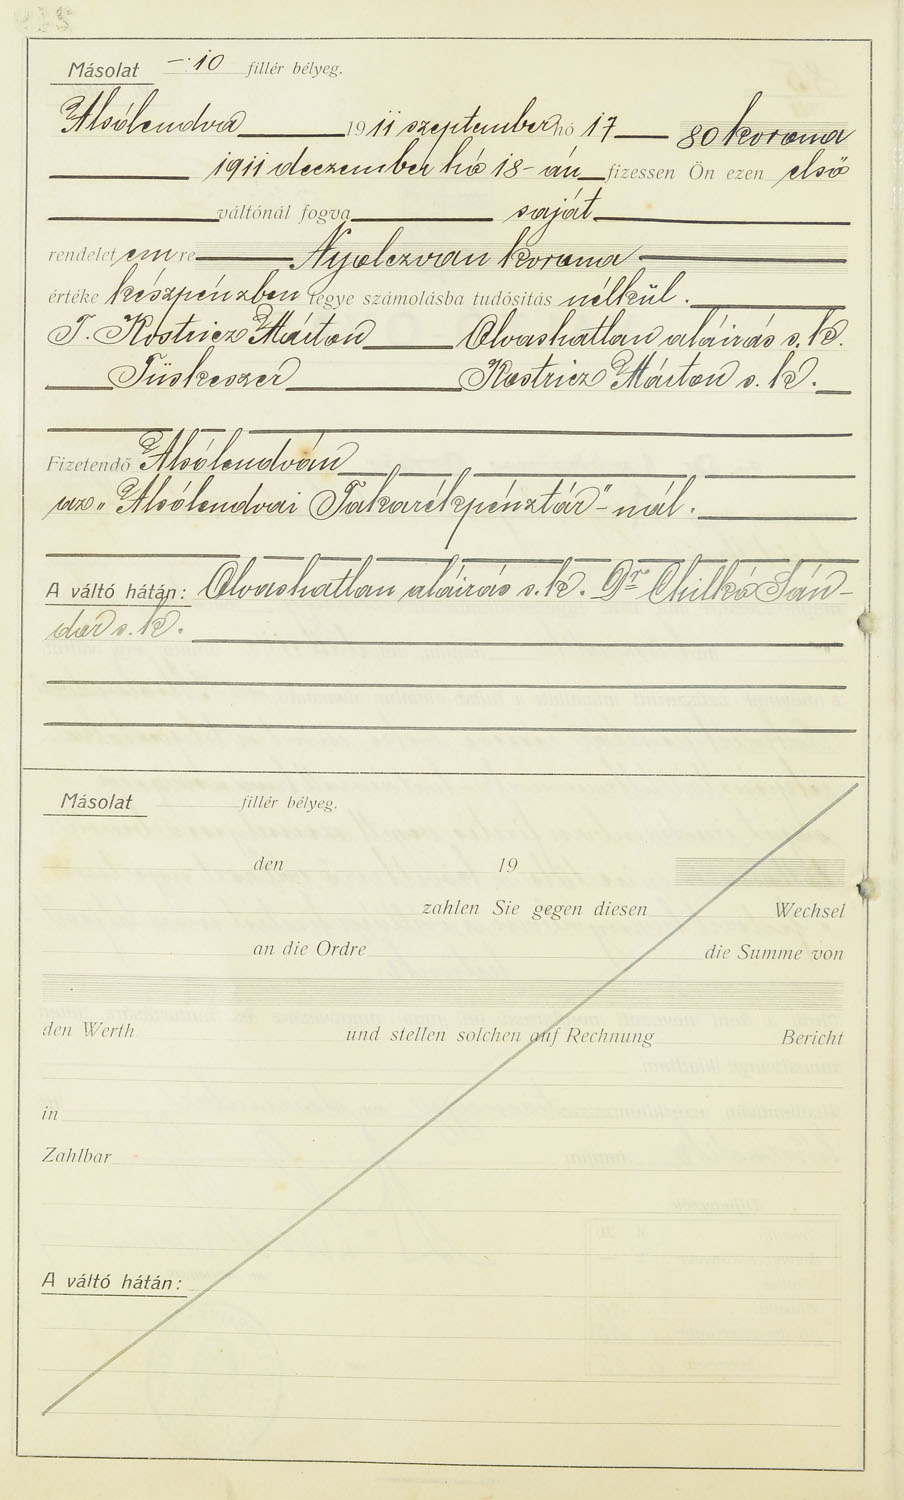 Másolat —·10 fillér bélyeg.
Alsólendva 1911 szeptember hó 17 80 korona
1911 deczember hó 18-án fizessen Ön ezen első
váltónál fogva saját
rendeletemre Nyolczvan korona
értéke készpénzben tegye számolásba tudósitás nélkül.
T. Kostricz Márton Olvashatlan aláirás s. k.
Tüskeszer Kostricz Márton s. k.
Fizetendő Alsólendván
az „Alsólendvai Takarékpénztár"-nál.
A váltó hátán: Olvashatlan aláirás s. k. Dr Chilkó Sán-
dor s. k.
Másolat fillér bélyeg.
den 19
zahlen Sie gegen diesen Wechsel
an die Ordre die Summe von
den Werth und stellen solchen auf Rechnung Bericht
in
Zahlbar
A váltó hátán: